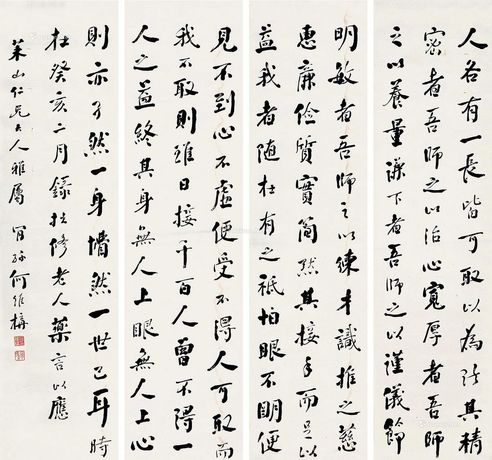 人各有一長皆可取以為其精
密者吾師之以治心寬厚者吾師
之以養量謙下者吾師之以謹儀節
明敏者吾師之以練才識推之慈
惠廉儉質實簡默其接手而足以
益我者隨在有之祗怕眼不明便
見不到心不虛便受不得人可取而
我不取則雖日接千百人曾不得一
人之益終其身無人上眼無人上心
則亦孑然一身懵然一世已耳時
在癸亥二月錄拙修老人藥言以應
萊山仁兄大人雅屬 孫何維構